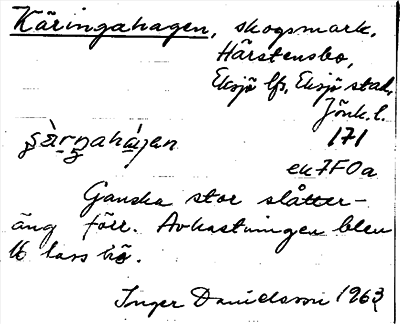 Käringahagen, skogsmark.
Härstensbo,
Eksjö lfs, Eksjö stad,
Jönk. l.
171
ek 7F0a
Ganska stor slåtter-
äng förr. Avkastningen blev
16 lass hö.
Inger Danielsson 1963